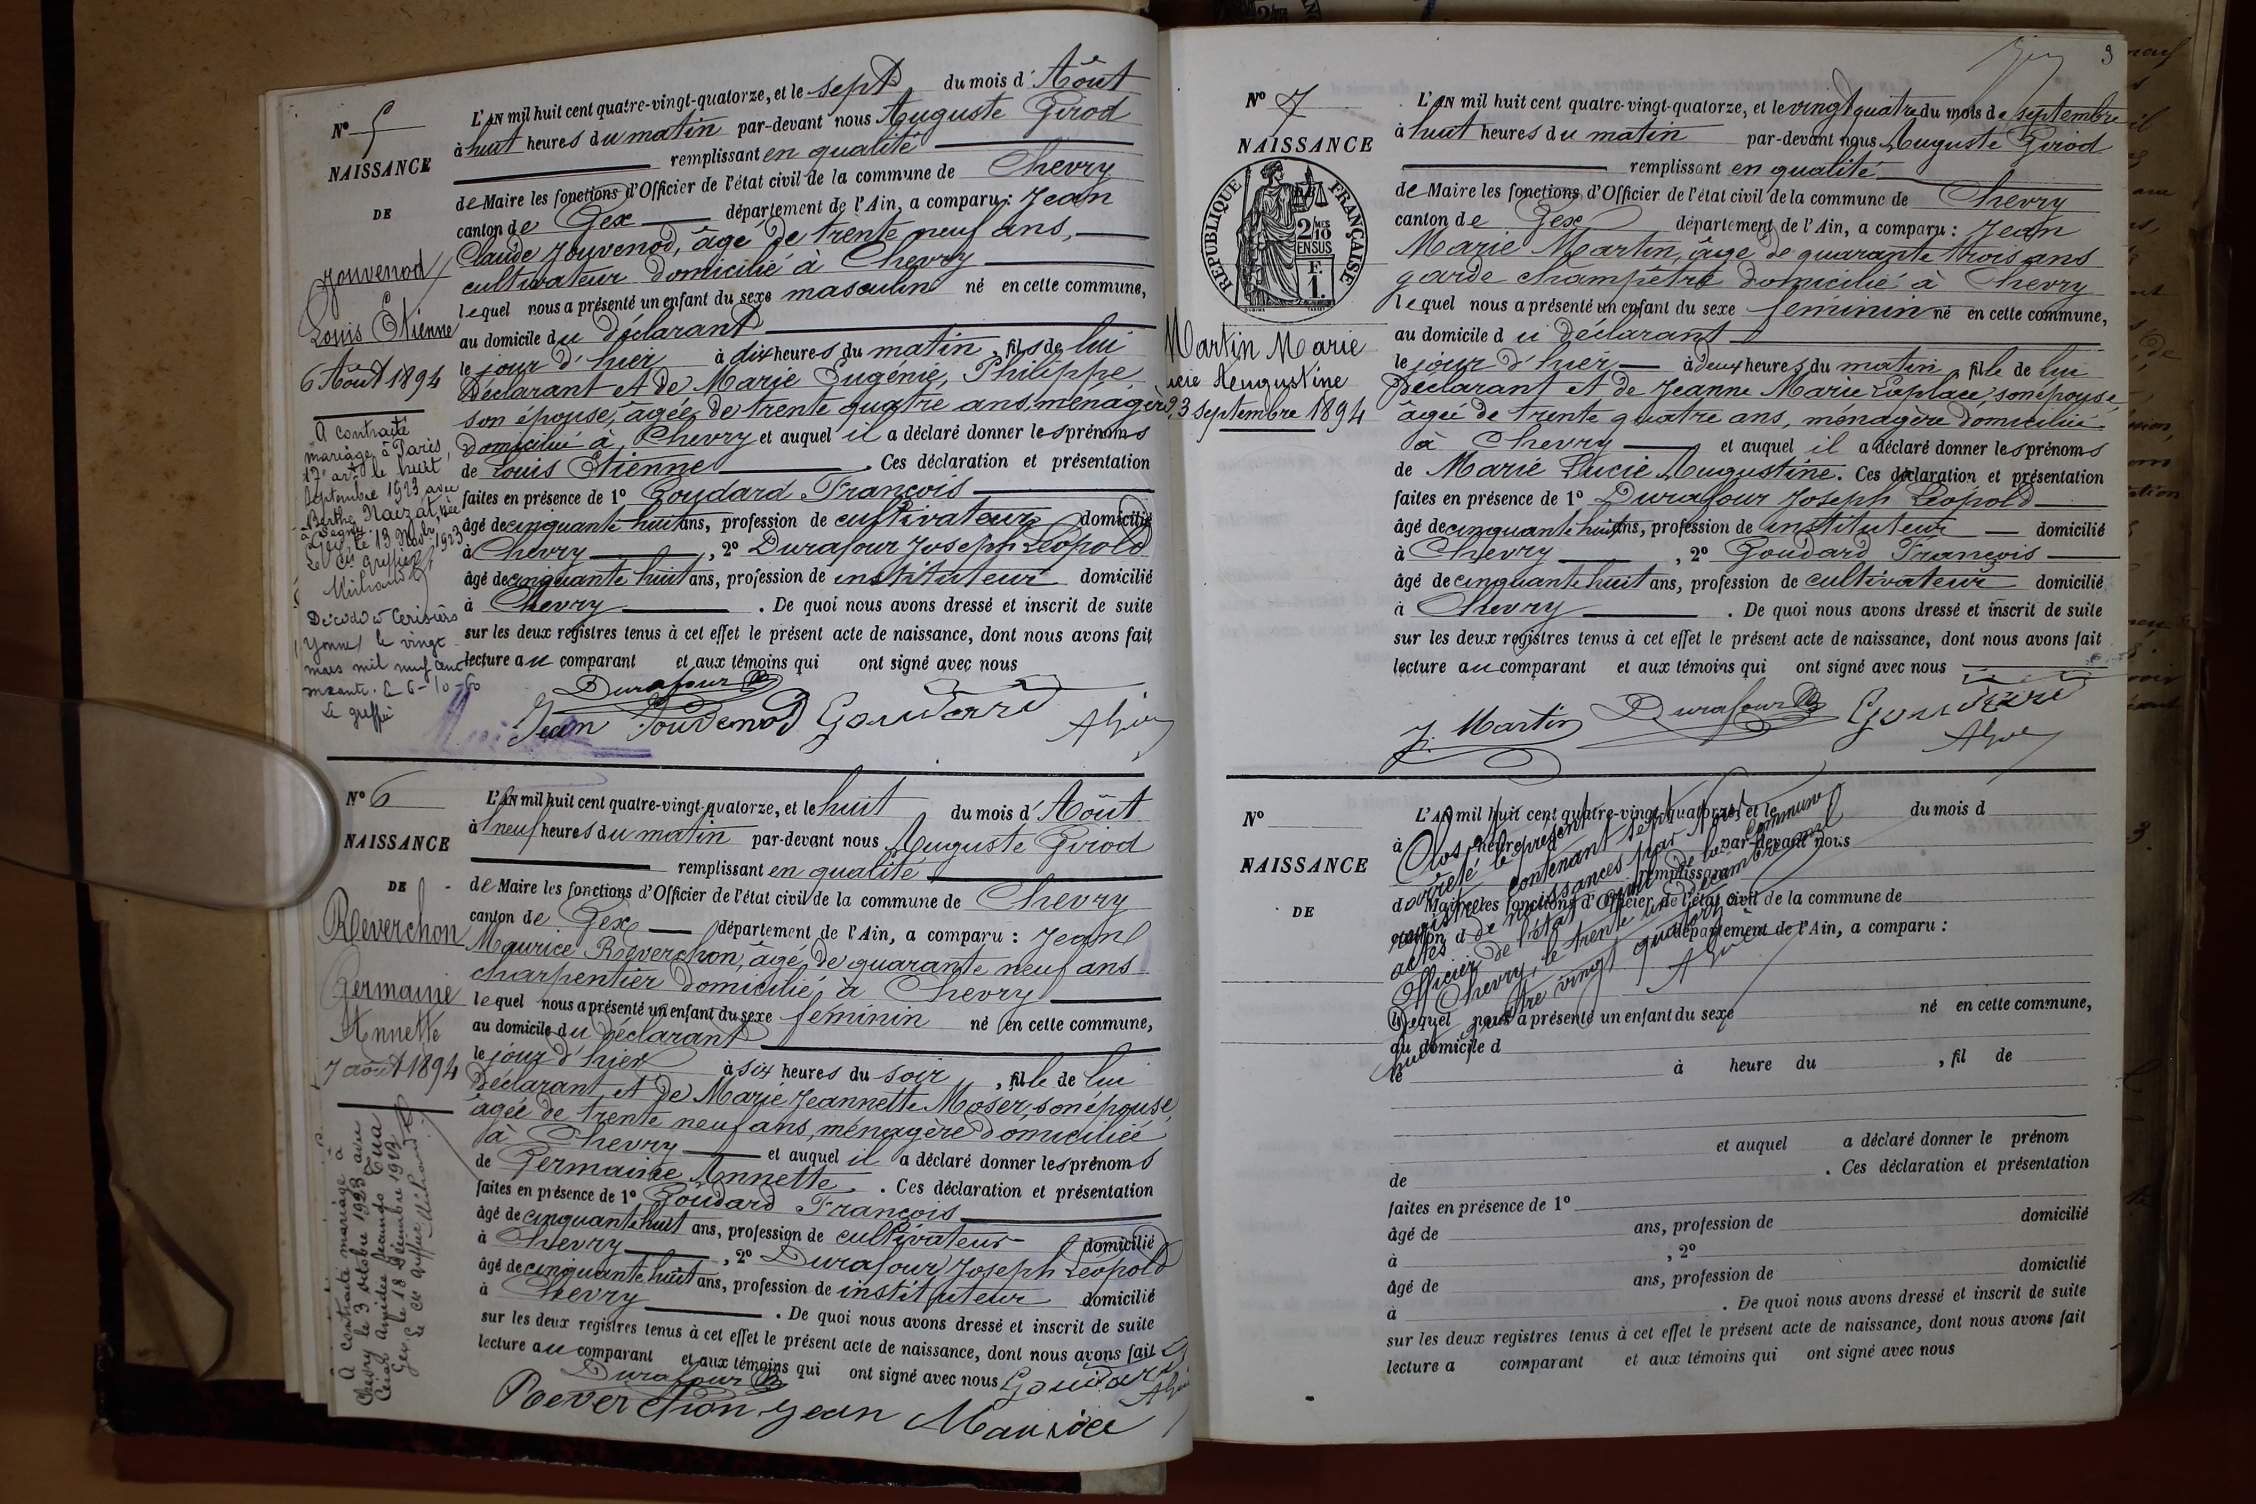 N° 5
NAISSANCE
DE
Jouvenod
Louis Etienne
6 Août 1894
A contracté
mariage à Paris,
17e arrt le huit
Septembre 1923 avec
Berthe Naizat, née
à Segny.
Gex, le 13 Novbr 1923
Le Cis Greffier
Décédé à Cerisiers
Yonne le vingt
mars mil neuf cent
soixante. Le 6-10-60
Le greffier
L'AN mil huit cent quatre-vingt-quatorze, et le sept du mois d'Août
à huit heures du matin par-devant nous Auguste Girod
remplissant en qualité
de Maire les fonctions d'Officier de l'état civil de la commune de Chevry
canton de Gex département de l'Ain, a comparu : Jean
Claude Jouvenod, âgé de trente neuf ans,
cultivateur domicilié à Chevry
lequel nous a présenté un enfant du sexe masculin né en cette commune,
au domicile du déclarant
le jour d'hier à dix heures du matin, fils de lui
déclarant et de Marie Eugénie, Philippe,
son épouse, âgée de trente quatre ans, ménagère
domicilié à Chevry et auquel il a déclaré donner les prénoms
de Louis Etienne. Ces déclaration et présentation
faites en présence de 1° Goudard François
âgé de cinquante huit ans, profession de cultivateur domicilié
à Chevry, 2° Durafour Joseph Léopold
âgé de cinquante huit ans, profession de instituteur domicilié
à Chevry. De quoi nous avons dressé et inscrit de suite
sur les deux registres tenus à cet effet le présent acte de naissance, dont nous avons fait
lecture au comparant et aux témoins qui ont signé avec nous
Durafour
Jean Jouvenod Goudard AGirod
N° 6
NAISSANCE
DE
Reverchon
Germaine
Annette
7 août 1894
A contracté mariage à
Chevry le 3 octobre 1923 avec
César Amédée Secundo Tua
Gex, le 18 Décembre 1923
Le Cis Greffier
L'AN mil huit cent quatre-vingt-quatorze, et le huit du mois d'Août
à neuf heures du matin par-devant nous Auguste Girod
remplissant en qualité
de Maire les fonctions d'Officier de l'état civil de la commune de Chevry
canton de Gex département de l'Ain, a comparu : Jean
Maurice Reverchon, âgé de quarante neuf ans
charpentier domicilié à Chevry
lequel nous a présenté un enfant du sexe féminin né en cette commune,
au domicile du déclarant
le jour d'hier à six heures du soir, fille de lui
déclarant et de Marie Jeannette Moser, son épouse,
âgée de trente neuf ans, ménagère domiciliée
à Chevry et auquel il a déclaré donner les prénoms
de Germaine Annette. Ces déclaration et présentation
faites en présence de 1° Goudard François
âgé de cinquante huit ans, profession de cultivateur domicilié
à Chevry, 2° Durafour Joseph Léopold
âgé de cinquante huit ans, profession de instituteur domicilié
à Chevry. De quoi nous avons dressé et inscrit de suite
sur les deux registres tenus à cet effet le présent acte de naissance, dont nous avons fait
lecture au comparant et aux témoins qui ont signé avec nous Goudard
Durafour AGirod
Reverchon Jean Maurice
3
N° 7
NAISSANCE
RÉPUBLIQUE FRANÇAISE
2/10MES
EN SUS
1F.
Martin Marie
Lucie Augustine
23 septembre 1894
L'AN mil huit cent quatre-vingt-quatorze, et le vingt quatre du mois de septembre
à huit heures du matin par-devant nous Auguste Girod
remplissant en qualité
de Maire les fonctions d'Officier de l'état civil de la commune de Chevry
canton de Gex département de l'Ain, a comparu : Jean
Marie Martin, âgé de quarante trois ans
garde champêtre domicilié à Chevry
lequel nous a présenté un enfant du sexe féminin né en cette commune,
au domicile du déclarant
le jour d'hier à deux heures du matin, fille de lui
déclarant et de Jeanne Marie Laplace, son épouse,
âgée de trente quatre ans, ménagère domicilié
à Chevry et auquel il a déclaré donner les prénoms
de Marie Lucie Augustine. Ces déclaration et présentation
faites en présence de 1° Durafour Joseph Léopold
âgé de cinquante huit ans, profession de instituteur domicilié
à Chevry, 2° Goudard François
âgé de cinquante huit ans, profession de cultivateur domicilié
à Chevry. De quoi nous avons dressé et inscrit de suite
sur les deux registres tenus à cet effet le présent acte de naissance, dont nous avons fait
lecture au comparant et aux témoins qui ont signé avec nous
J. Martin Durafour Goudard
AGirod
N°
NAISSANCE
DE
L'AN mil huit cent quatre-vingt-quatorze, et le du mois d
à heure par-devant nous
remplissant
d Maire les fonctions d'Officier de l'état civil de la commune de
canton d département de l'Ain, a comparu :
lequel nous a présenté un enfant du sexe né en cette commune,
au domicile d
le à heure du , fil de
et auquel a déclaré donner le prénom
de . Ces déclaration et présentation
faites en présence de 1°
âgé de ans, profession de domicilié
à , 2°
âgé de ans, profession de domicilié
à . De quoi nous avons dressé et inscrit de suite
sur les deux registres tenus à cet effet le présent acte de naissance, dont nous avons fait
lecture a comparant et aux témoins qui ont signé avec nous
Clos et
arrêté le présent
registre contenant sept
actes de naissances par Nous
Officier de l'état civil de la commune
de Chevry, le trente un décembre mil
huit cent quatre vingt quatorze
AGirod